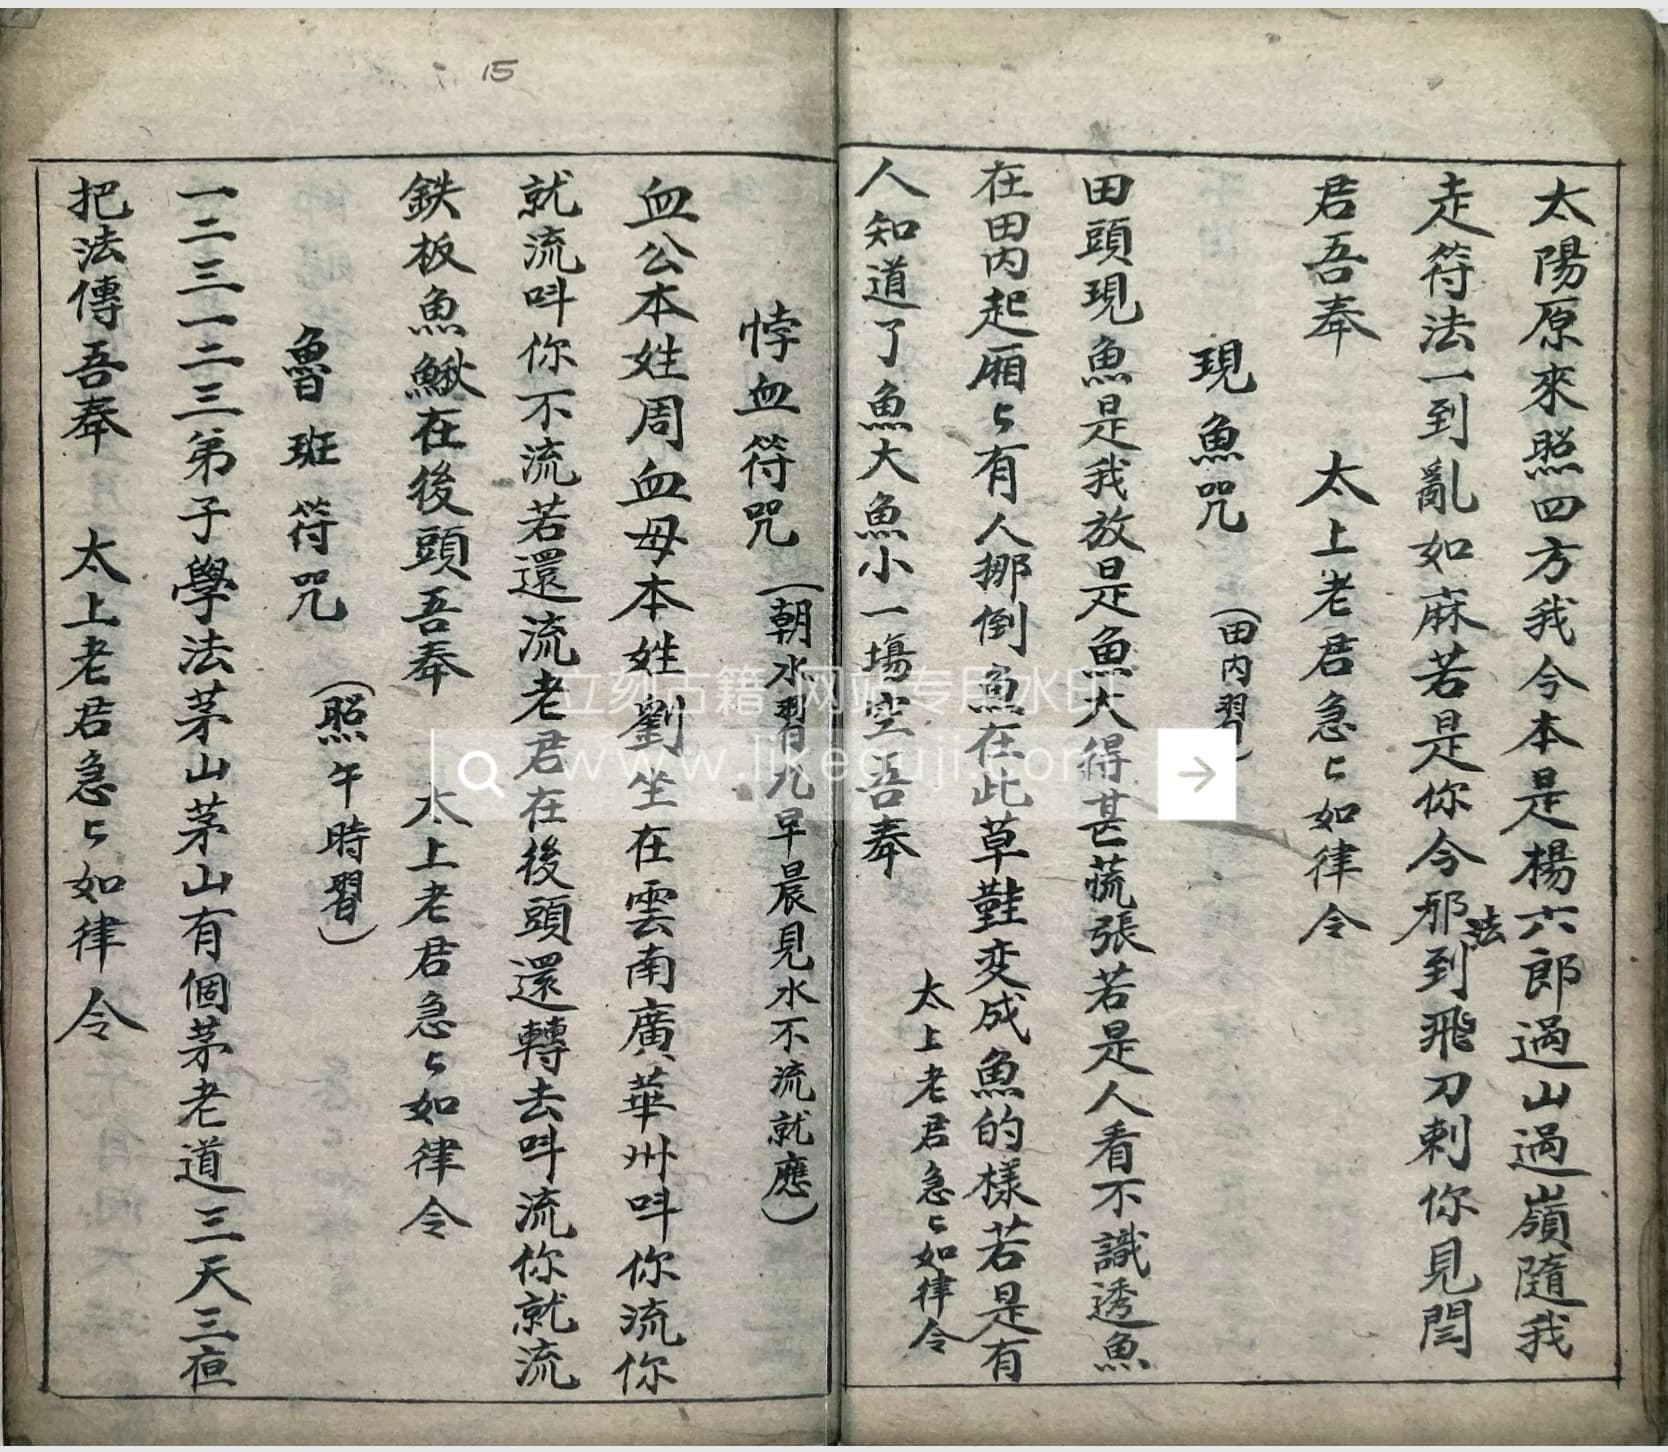 太陽原來照四方我今本是楊六郎過山過嶺隨我
走符法一到亂如麻若是你今邪法到飛刀刺你見閆
君吾奉　太上老君急〻如律令
現魚咒　(田内習)
田頭現魚是我放是魚大得甚蔬張若是人看不識透魚
在田内起厢〻有人挪倒魚在此草鞋变成魚的樣若是有
人知道了魚大魚小一塲空吾奉　太上老君急〻如律令
悖血符咒　(朝水習九早晨見水不流就應)
血公本姓周血母本姓劉坐在雲南廣華州呌你流你
就流呌你不流若還流老君在後頭還轉去呌流你就流
鉄板魚鰍在後頭吾奉　太上老君急〻如律令
魯班符咒　(照午時習)
一二三一二三弟子學法茅山茅山有個茅老道三天三夜
把法傳吾奉　太上老君急〻如律令
15
立刻古籍 网站专用水印
www.likeguji.com